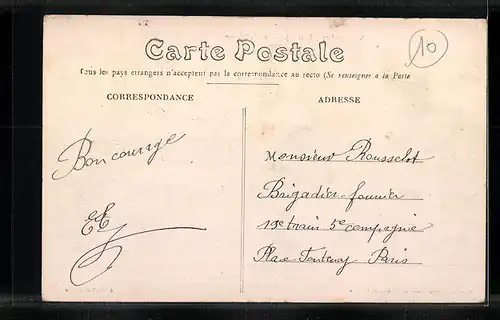 Carte Postale
Tous les pays etrangers n'acceptent pas la correspondance au recto (Se renseigner à la Poste
CORRESPONDANCE
ADRESSE
10
Bon courage
Monsieur Rousselot
Brigadier-fourrier
19e train 5e compagnie
Place Fontenoy Paris